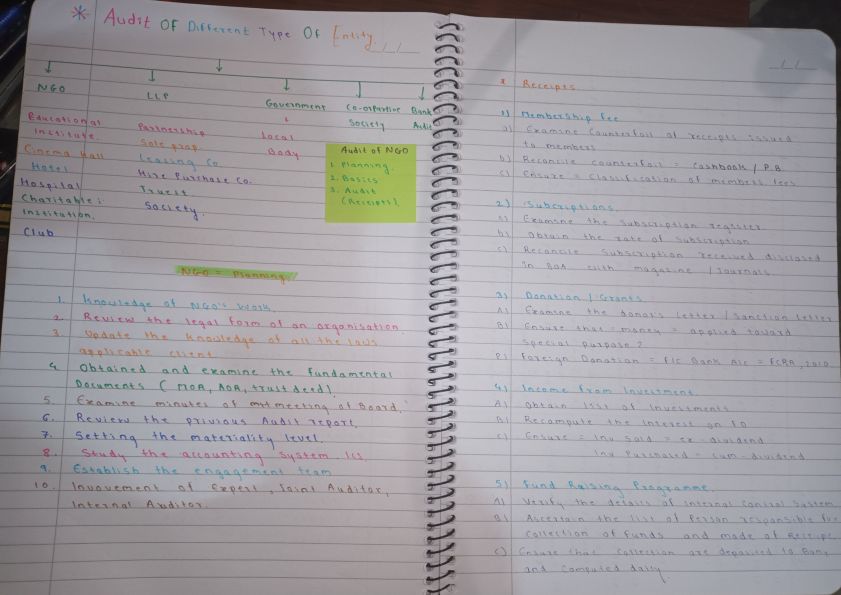 * Audit Of Different Type Of Entity.
NGO
LLP
Government
Co-opartive Society
Bank Audit
Educational Institute.
Cinema Hall
Hotel
Hospital
Charitable Institution.
Club
Partnership
Sole prop.
Leasing Co.
Hire Purchase Co.
Trust
Society.
Local
Body
Audit of NGO
1. Planning.
2. Basics
3. Audit
(Receipts).
NGO = Planning.
1. Knowledge of NGO's Work.
2. Review the legal form of an organisation.
3. Update the knowledge of all the laws
applicable client.
4. Obtained and examine the fundamental
Documents ( MOA, AOA, trust deed).
5. Examine minutes of meeting of Board.
6. Review the privious Audit report.
7. Setting the materiality level.
8. Study the accounting System
9. Establish the engagement team
10. Invovement of Expert, Joint Auditor,
Internal Auditor.
* Receipts
1) Membership Fee
a) Examine Counterfoil of receipts issued
to members
b) Reconcile counterfoil = Cashbook / P.B.
c) Ensure = Classification of members fees
2) Subcriptions.
a) Examine the subscription register
b) Obtain the rate of subscription
c) Reconcile subscription received disclosed
in BOA with magazine / Journals.
3) Donation / Grants
A) Examine the donor's Letter / Sanction letter
B) Ensure that = money = applied toward
special purpose?
Foreign Donation = Bank A/c = FCRA, 2010
4) Income from Investment.
A) Obtain list of Investments
B) Recompute the Interest on
c) Ensure = Inv Sold = ex-dividend
Inv Purchased = cum-dividend
5) Fund Raising Programme.
A) Verify the details of internal Control System
B) Ascertain the list of Person responsible for
collection of funds and made of Receipt
c) Ensure that collection are deposited to Bank
and computed daily.